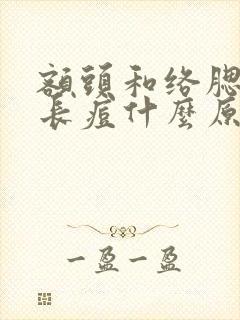 額頭和络腮
長痘什麼原
一盈一盈